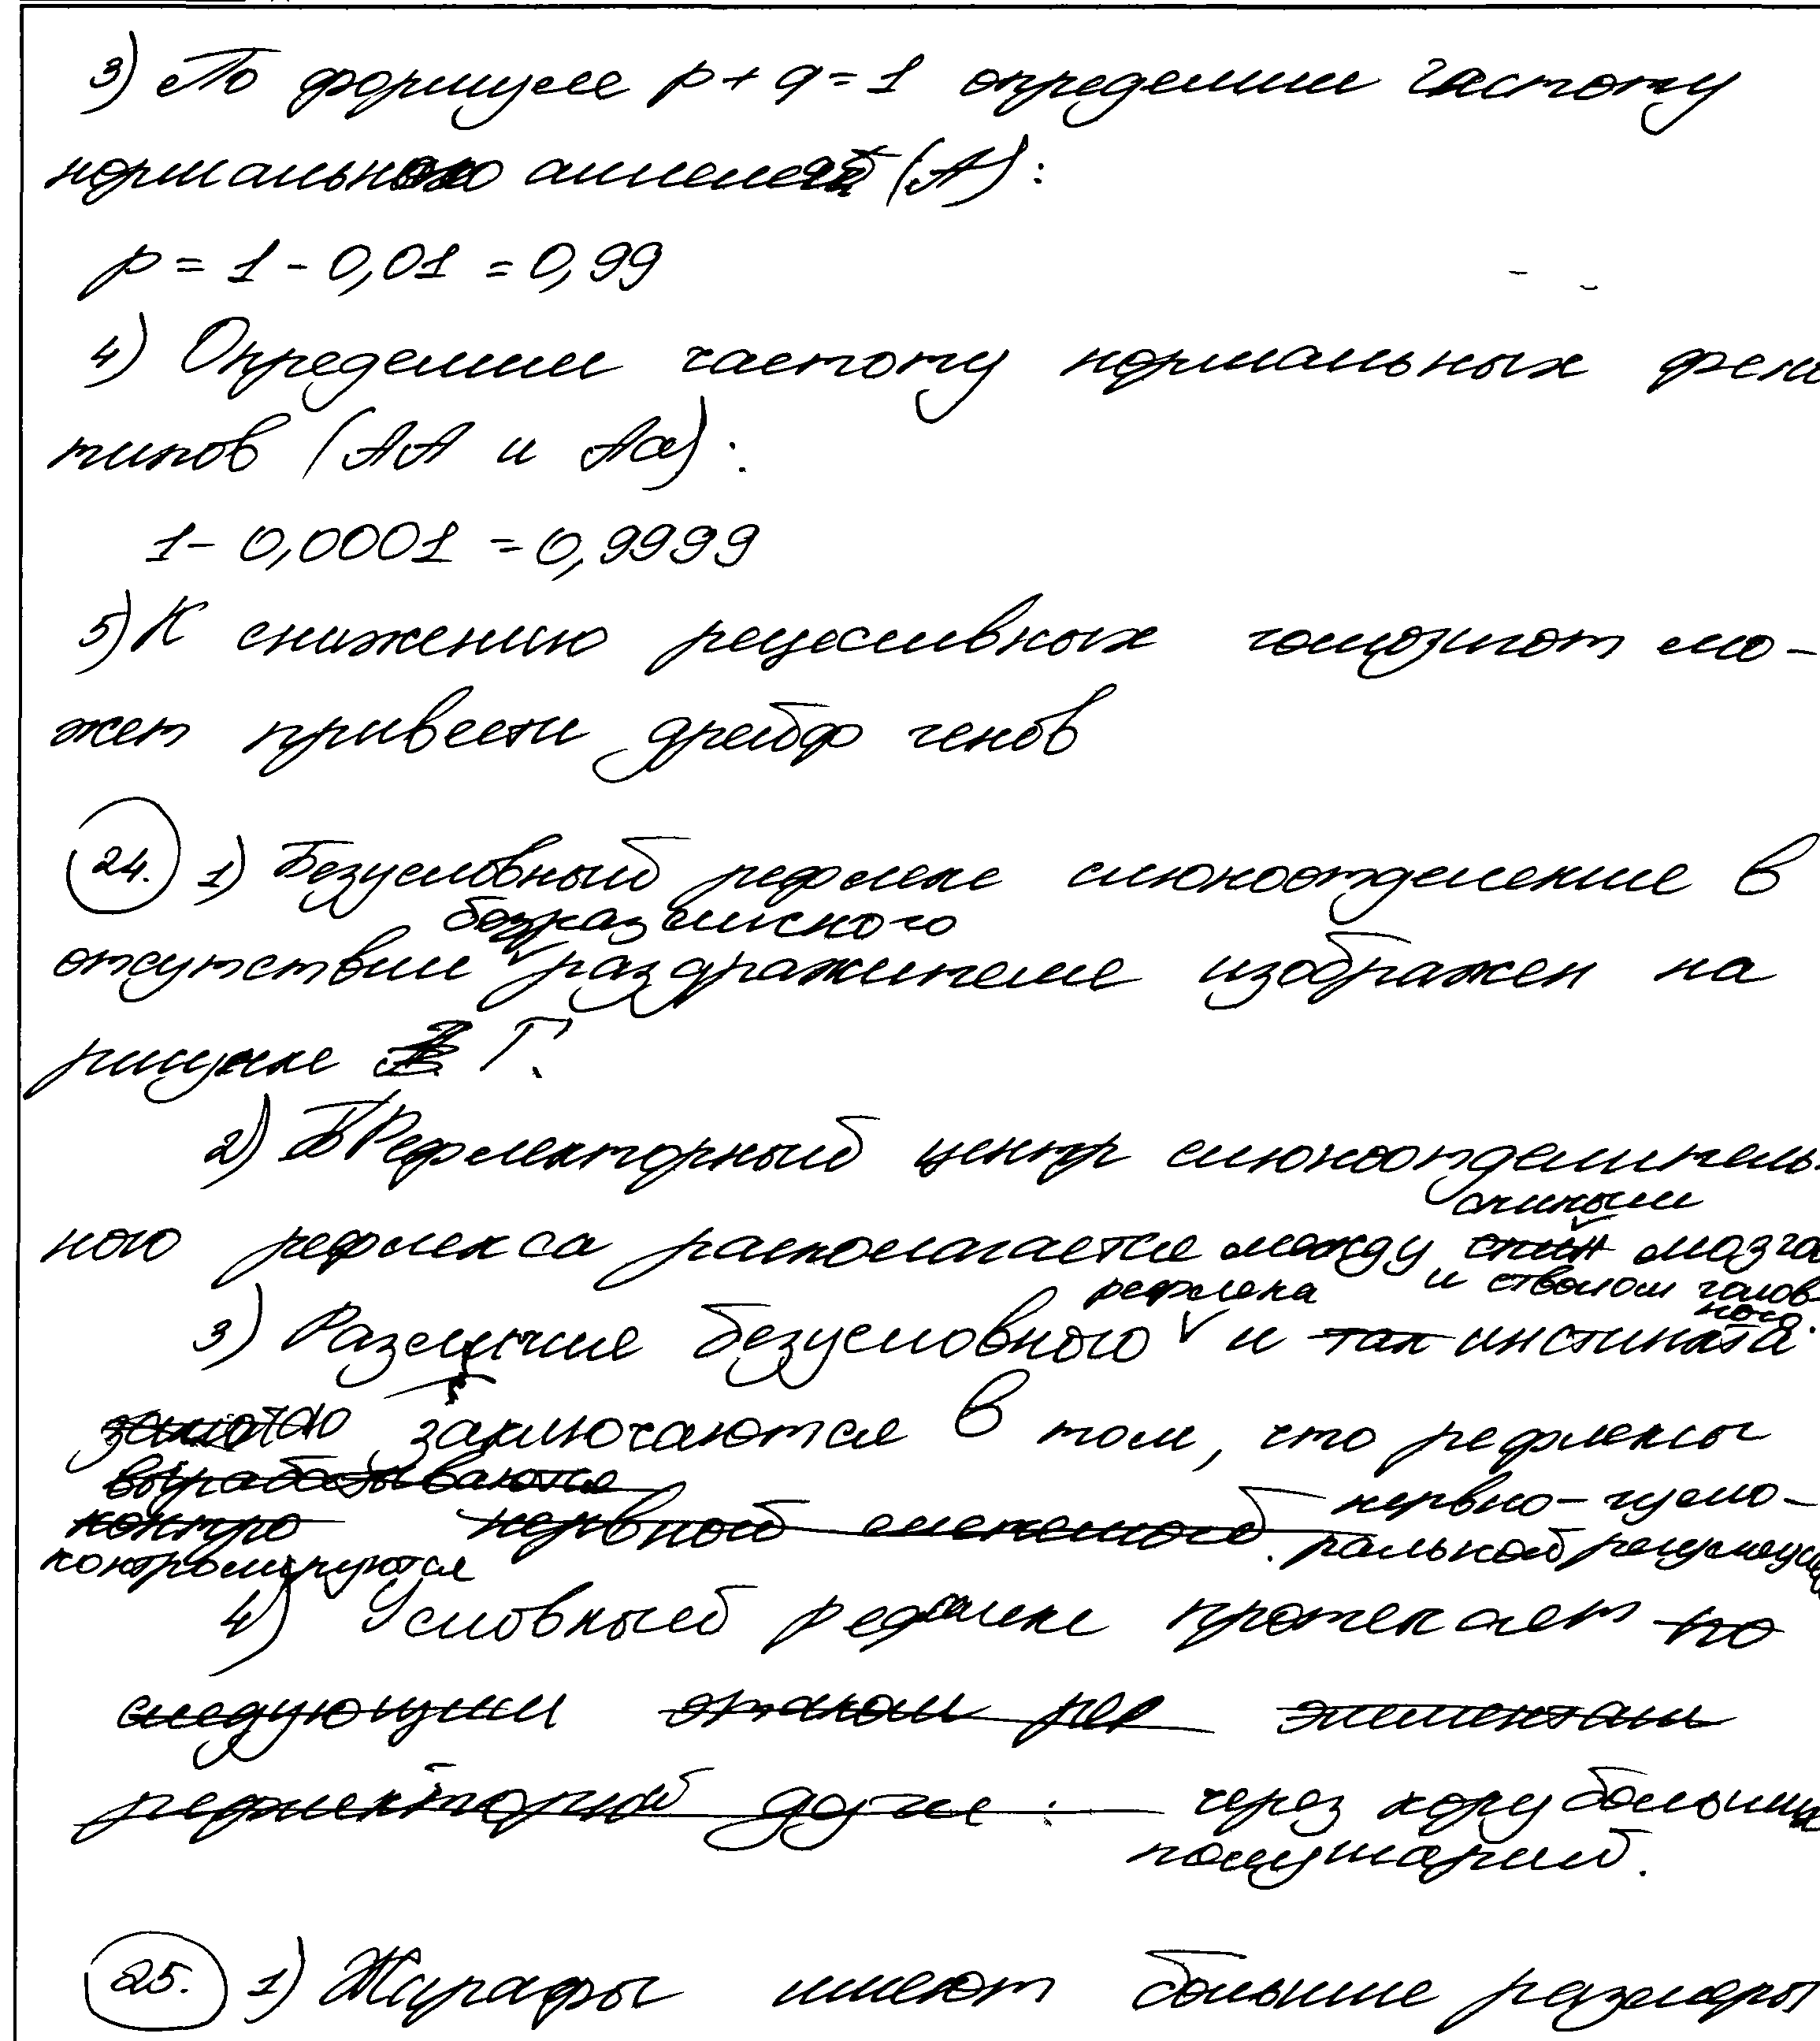 3) По формуле p + q = 1 определим частоту
нормального аллеля (А):
p = 1 - 0,01 = 0,99
4) Определим частоту нормальных фено
типов (АА и Аа):
1 - 0,0001 = 0,9999
5) К снижению рецессивных гомозигот мо-
жет привести дрейф генов
24. 1) Безусловный рефлекс слюноотделение в
безразличного
отсутствии раздражителе изображен на
рисунке Г.
2) Рефлекторный центр слюноотделитель-
ного рефлекса располагается между спиным мозго
и стволом голов-
ного.
3) Различие безусловного рефлекса и инстинкта
заключаются в том, что рефлексы
контролируются нервно-гумо-
ральной регуляцией
4) Условный рефлекс протекает
через кору больших
полушарий.
25. 1) Жирафы имеют больше размеры